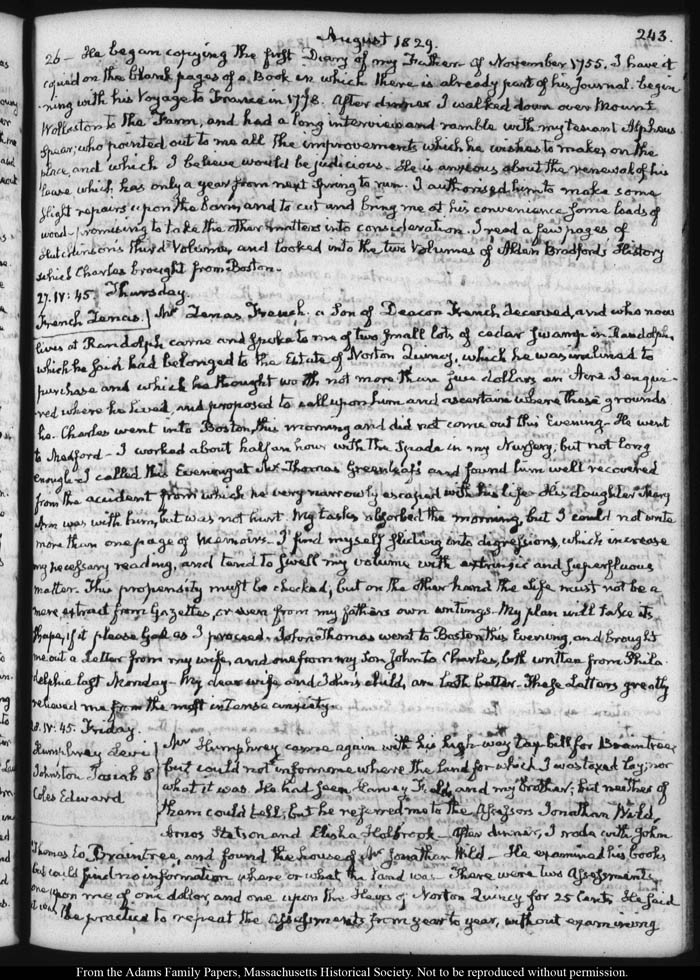 August 1829.
243.
26 – He began copying the first Diary of my Father of November 1755. I have it
copied on the blank pages of a Book in which there is already part of his Journal begin
ning with his Voyage to France in 1778. After dinner I walked down over Mount
Wollaston to the Farm, and had a long interview and ramble with my tenant Alpheus
Spear; who pointed out to me all the improvements which he wishes to make on the
place, and which I believe would be judicious – He is anxious about the renewal of his
lease which has only a year from next Spring to run. I authorised him to make some
slight repairs upon the Barn, and to cut and bring me at his convenience some loads of
wood – promising to take the other matters into consideration. I read a few pages of
Hutchinson's third Volume, and looked into the two Volumes of Alden Bradford's History
which Charles brought from Boston.
27. IV: 45. Thursday.
French Zenas. Mr Zenas French, a Son of Deacon French deceased, and who now
lives at Randolph came and spoke to me of two small lots of cedar Swamp in Randolph,
which he said had belonged to the Estate of Norton Quincy, which he was inclined to
purchase and which he thought worth not more than five dollars an Acre. I enqui-
red where he lived, and proposed to call upon him and ascertain where these grounds
lie. Charles went into Boston, this morning and did not come out this Evening – He went
to Medford – I worked about half an hour with the Spade in my Nursery; but not long
enough – I called this Evening at Mr Thomas Greenleaf's and found him well recovered
from the accident from which he very narrowly escaped with his life – His daughter Mary
Ann was with him, but was not hurt. My tasks absorbed the morning, but I could not write
more than one page of Memoirs – I find myself sliding into digressions, which increase
my necessary reading, and tend to swell my volume with extrinsic and superfluous
matter. This propensity must be checked; but on the other hand the Life must not be a
mere extract from Gazettes, or even from my father's own writings. My plan will take its
shape, if it please God as I proceed. John Thomas went to Boston this Evening, and brought
me out a Letter from my wife, and one from my Son John to Charles, both written from Phila
delphia last Monday – My dear wife and John's child, are both better. These Letters greatly
relieved me from the most intense anxiety.
28. IV: 45. Friday.
Humphrey Levi
Johnston Josiah S
Coles Edward
Mr Humphrey came again with his high way tax bill for Braintree
but could not inform me where the land for which I was taxed lay; nor
what it was. He had seen Harvey Field, and my brother; but neither of
them could tell; but he referred me to the Assessors Jonathan Wild,
Amos Stetson and Elisha Holbrook – After dinner, I rode with John
Thomas to Braintree, and found the house of Mr Jonathan Wild – He examined his books
but could find no information where or what the land was – There were two Assessments
one upon me of one dollar and one upon the Heirs of Norton Quincy for 25 Cents. He said
it was the practice to repeat the Assessments from year to year, without examining
From the Adams Family Papers, Massachusetts Historical Society. Not to be reproduced without permission.